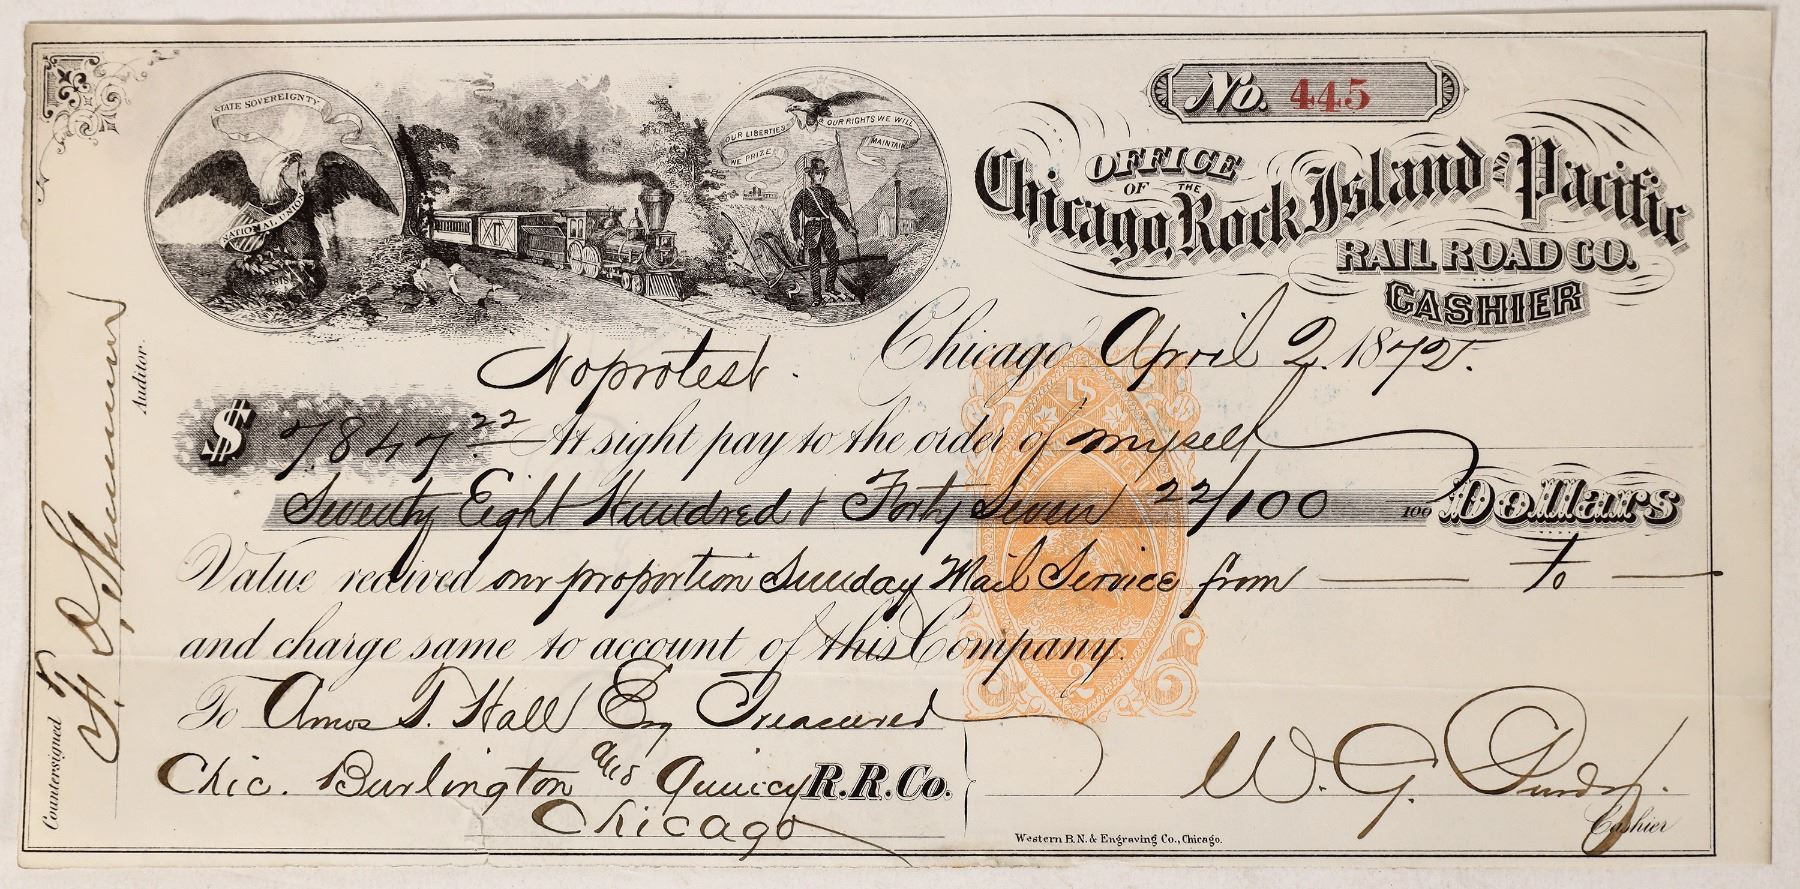 STATE SOVEREIGNTY
NATIONAL UNION
OUR LIBERTIES WE PRIZE
OUR RIGHTS WE WILL MAINTAIN
No. 445
OFFICE
OF THE
Chicago, Rock Island AND Pacific
RAIL ROAD CO.
CASHIER
No protest.
Chicago April 2. 1872.
$ 7.847.22 At sight pay to the order of myself
Seventy Eight Hundred & Forty Seven 22/100 100 Dollars
Value received our proportion Sunday Mail Service from — to —
and charge same to account of this Company.
To Amos T. Hall Esq Treasurer
Chic. Burlington and Quincy R.R.Co.
Chicago
W. G. Purdy.
Cashier
Western B.N. & Engraving Co., Chicago.
Countersigned
Auditor.
U.S.
2